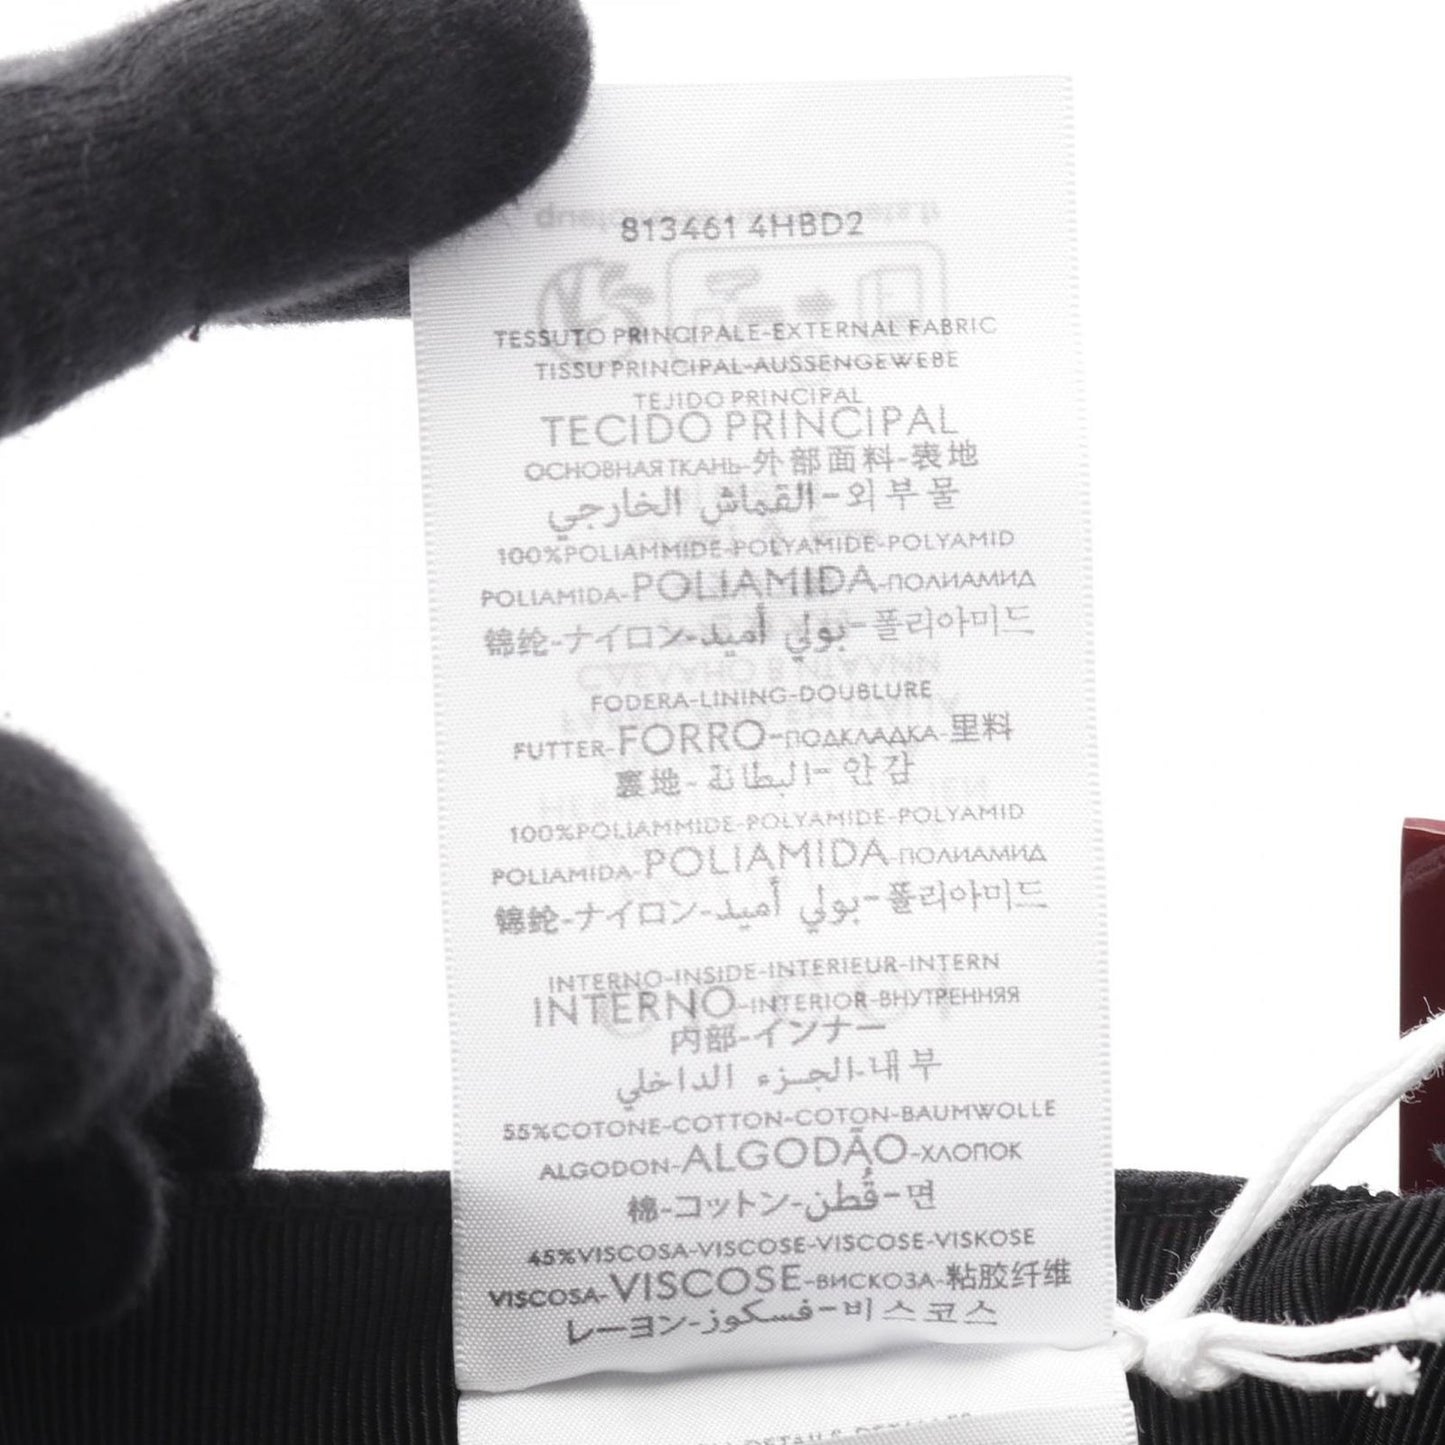 813461 4HBD2
TESSUTO PRINCIPALE-EXTERNAL FABRIC
TISSU PRINCIPAL-AUSSENGEWEBE
TEJIDO PRINCIPAL
TECIDO PRINCIPAL
ОСНОВНАЯ ТКАНЬ-外部面料-表地
القماش الخارجي-외부물
100%POLIAMMIDE-POLYAMIDE-POLYAMID
POLIAMIDA-POLIAMIDA-ПОЛИАМИД
锦纶-ナイロン-بولي أميد-폴리아미드
FODERA-LINING-DOUBLURE
FUTTER-FORRO-ПОДКЛАДКА-里料
裏地-البطانة-안감
100%POLIAMMIDE-POLYAMIDE-POLYAMID
POLIAMIDA-POLIAMIDA-ПОЛИАМИД
锦纶-ナイロン-بولي أميد-폴리아미드
INTERNO-INSIDE-INTERIEUR-INTERN
INTERNO-INTERIOR-ВНУТРЕННЯЯ
内部-インナー
الجزء الداخلي-내부
55%COTONE-COTTON-COTON-BAUMWOLLE
ALGODON-ALGODÃO-ХЛОПОК
棉-コットン-قُطن-면
45%VISCOSA-VISCOSE-VISCOSE-VISKOSE
VISCOSA-VISCOSE-ВИСКОЗА-粘胶纤维
レーヨン-فسكوز-비스코스